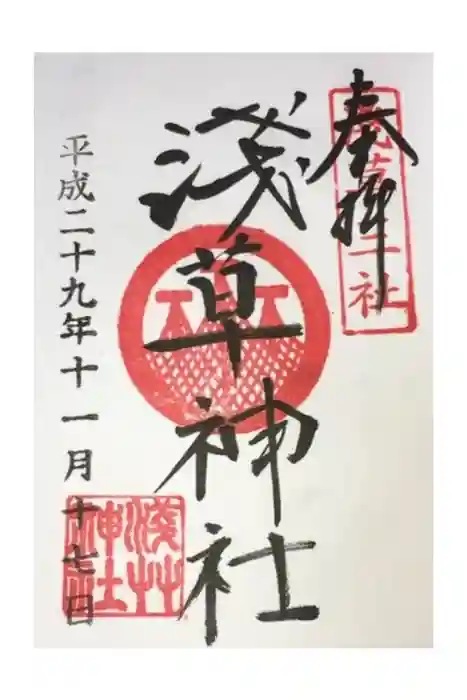 奉拝
淺草神社
平成二十九年十一月十七日
淺草神社